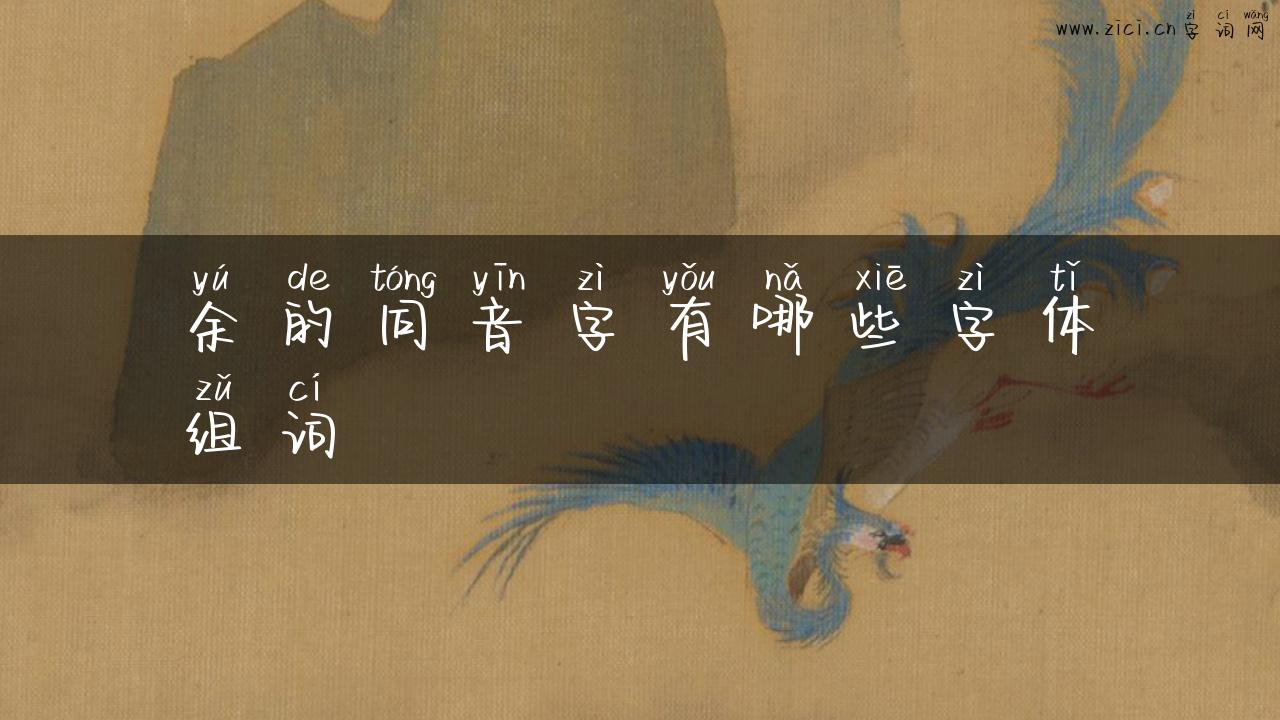 zì cí wǎng
www.zici.cn 字 词 网
yú de tóng yīn zì yǒu nǎ xiē zì tǐ
余 的 同 音 字 有 哪 些 字 体
zǔ cí
组 词